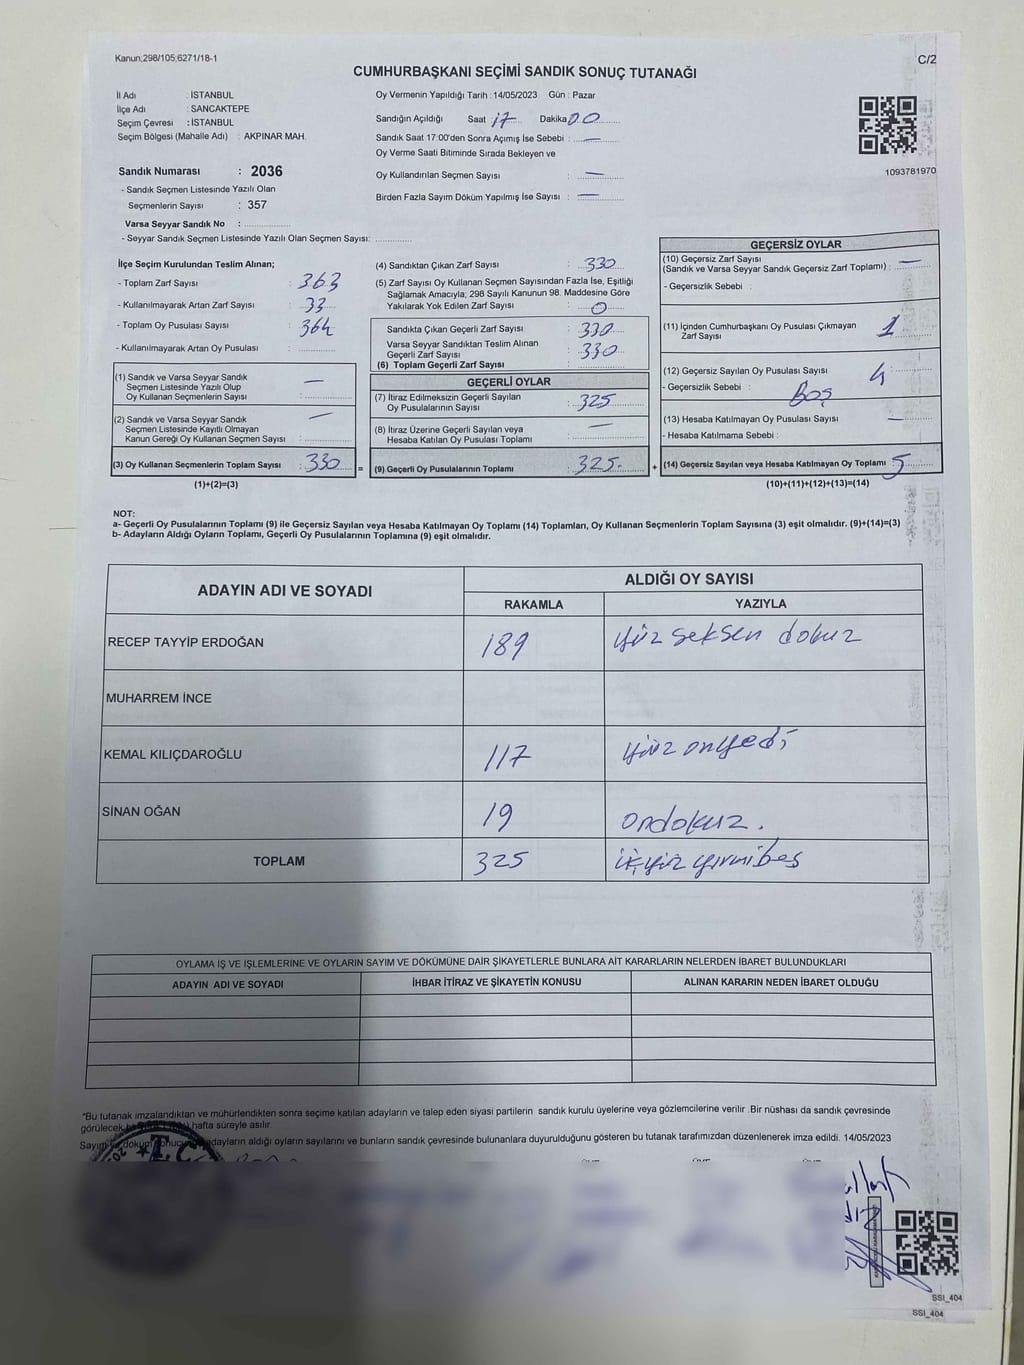 Kanun;298/105;6271/18-1
C/2
CUMHURBAŞKANI SEÇİMİ SANDIK SONUÇ TUTANAĞI
İl Adı : İSTANBUL
İlçe Adı : SANCAKTEPE
Seçim Çevresi : İSTANBUL
Seçim Bölgesi (Mahalle Adı) : AKPINAR MAH.
Sandık Numarası : 2036
- Sandık Seçmen Listesinde Yazılı Olan
Seçmenlerin Sayısı : 357
Varsa Seyyar Sandık No :
- Seyyar Sandık Seçmen Listesinde Yazılı Olan Seçmen Sayısı:
Oy Vermenin Yapıldığı Tarih :14/05/2023 Gün : Pazar
Sandığın Açıldığı Saat 17 Dakika 00
Sandık Saat 17:00'den Sonra Açımış İse Sebebi : —
Oy Verme Saati Bitiminde Sırada Bekleyen ve
Oy Kullandırılan Seçmen Sayısı : —
Birden Fazla Sayım Döküm Yapılmış İse Sayısı : —
1093781970
İlçe Seçim Kurulundan Teslim Alınan;
- Toplam Zarf Sayısı : 363
- Kullanılmayarak Artan Zarf Sayısı : 33
- Toplam Oy Pusulası Sayısı : 364
- Kullanılmayarak Artan Oy Pusulası :
(1) Sandık ve Varsa Seyyar Sandık
Seçmen Listesinde Yazılı Olup
Oy Kullanan Seçmenlerin Sayısı : —
(2) Sandık ve Varsa Seyyar Sandık
Seçmen Listesinde Kayıtlı Olmayan
Kanun Gereği Oy Kullanan Seçmen Sayısı : —
(3) Oy Kullanan Seçmenlerin Toplam Sayısı : 330 =
(1)+(2)=(3)
(4) Sandıktan Çıkan Zarf Sayısı : 330
(5) Zarf Sayısı Oy Kullanan Seçmen Sayısından Fazla İse, Eşitliği
Sağlamak Amacıyla; 298 Sayılı Kanunun 98. Maddesine Göre
Yakılarak Yok Edilen Zarf Sayısı : 0
Sandıkta Çıkan Geçerli Zarf Sayısı : 330
Varsa Seyyar Sandıktan Teslim Alınan
Geçerli Zarf Sayısı : 330
(6) Toplam Geçerli Zarf Sayısı :
GEÇERLİ OYLAR
(7) İtiraz Edilmeksizin Geçerli Sayılan
Oy Pusulalarının Sayısı : 325
(8) İtiraz Üzerine Geçerli Sayılan veya
Hesaba Katılan Oy Pusulası Toplamı : —
(9) Geçerli Oy Pusulalarının Toplamı : 325. +
GEÇERSİZ OYLAR
(10) Geçersiz Zarf Sayısı
(Sandık ve Varsa Seyyar Sandık Geçersiz Zarf Toplamı) : —
- Geçersizlik Sebebi :
(11) İçinden Cumhurbaşkanı Oy Pusulası Çıkmayan
Zarf Sayısı : 1
(12) Geçersiz Sayılan Oy Pusulası Sayısı : 4
- Geçersizlik Sebebi : Boş
(13) Hesaba Katılmayan Oy Pusulası Sayısı : —
- Hesaba Katılmama Sebebi :
(14) Geçersiz Sayılan veya Hesaba Katılmayan Oy Toplamı : 5
(10)+(11)+(12)+(13)=(14)
NOT:
a- Geçerli Oy Pusulalarının Toplamı (9) ile Geçersiz Sayılan veya Hesaba Katılmayan Oy Toplamı (14) Toplamları, Oy Kullanan Seçmenlerin Toplam Sayısına (3) eşit olmalıdır. (9)+(14)=(3)
b- Adayların Aldığı Oyların Toplamı, Geçerli Oy Pusulalarının Toplamına (9) eşit olmalıdır.
ADAYIN ADI VE SOYADI
ALDIĞI OY SAYISI
RAKAMLA YAZIYLA
RECEP TAYYİP ERDOĞAN 189 yüz seksen dokuz
MUHARREM İNCE
KEMAL KILIÇDAROĞLU 117 yüz onyedi
SİNAN OĞAN 19 ondokuz.
TOPLAM 325 üçyüz yirmibeş
OYLAMA İŞ VE İŞLEMLERİNE VE OYLARIN SAYIM VE DÖKÜMÜNE DAİR ŞİKAYETLERLE BUNLARA AİT KARARLARIN NELERDEN İBARET BULUNDUKLARI
ADAYIN ADI VE SOYADI İHBAR İTİRAZ VE ŞİKAYETİN KONUSU ALINAN KARARIN NEDEN İBARET OLDUĞU
*Bu tutanak imzalandıktan ve mühürlendikten sonra seçime katılan adayların ve talep eden siyasi partilerin sandık kurulu üyelerine veya gözlemcilerine verilir .Bir nüshası da sandık çevresinde
görülecek hafta süreyle asılır.
Sayım adayların aldığı oyların sayılarını ve bunların sandık çevresinde bulunanlara duyurulduğunu gösteren bu tutanak tarafımızdan düzenlenerek imza edildi. 14/05/2023
T.C
SSI_404
SSI_404